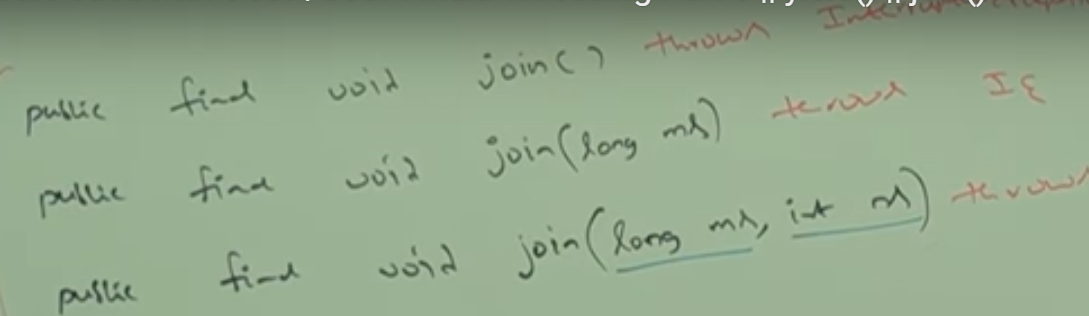 public final void join() throws
public final void join(long ms) throws IE
public final void join(long ms, int ns) throws